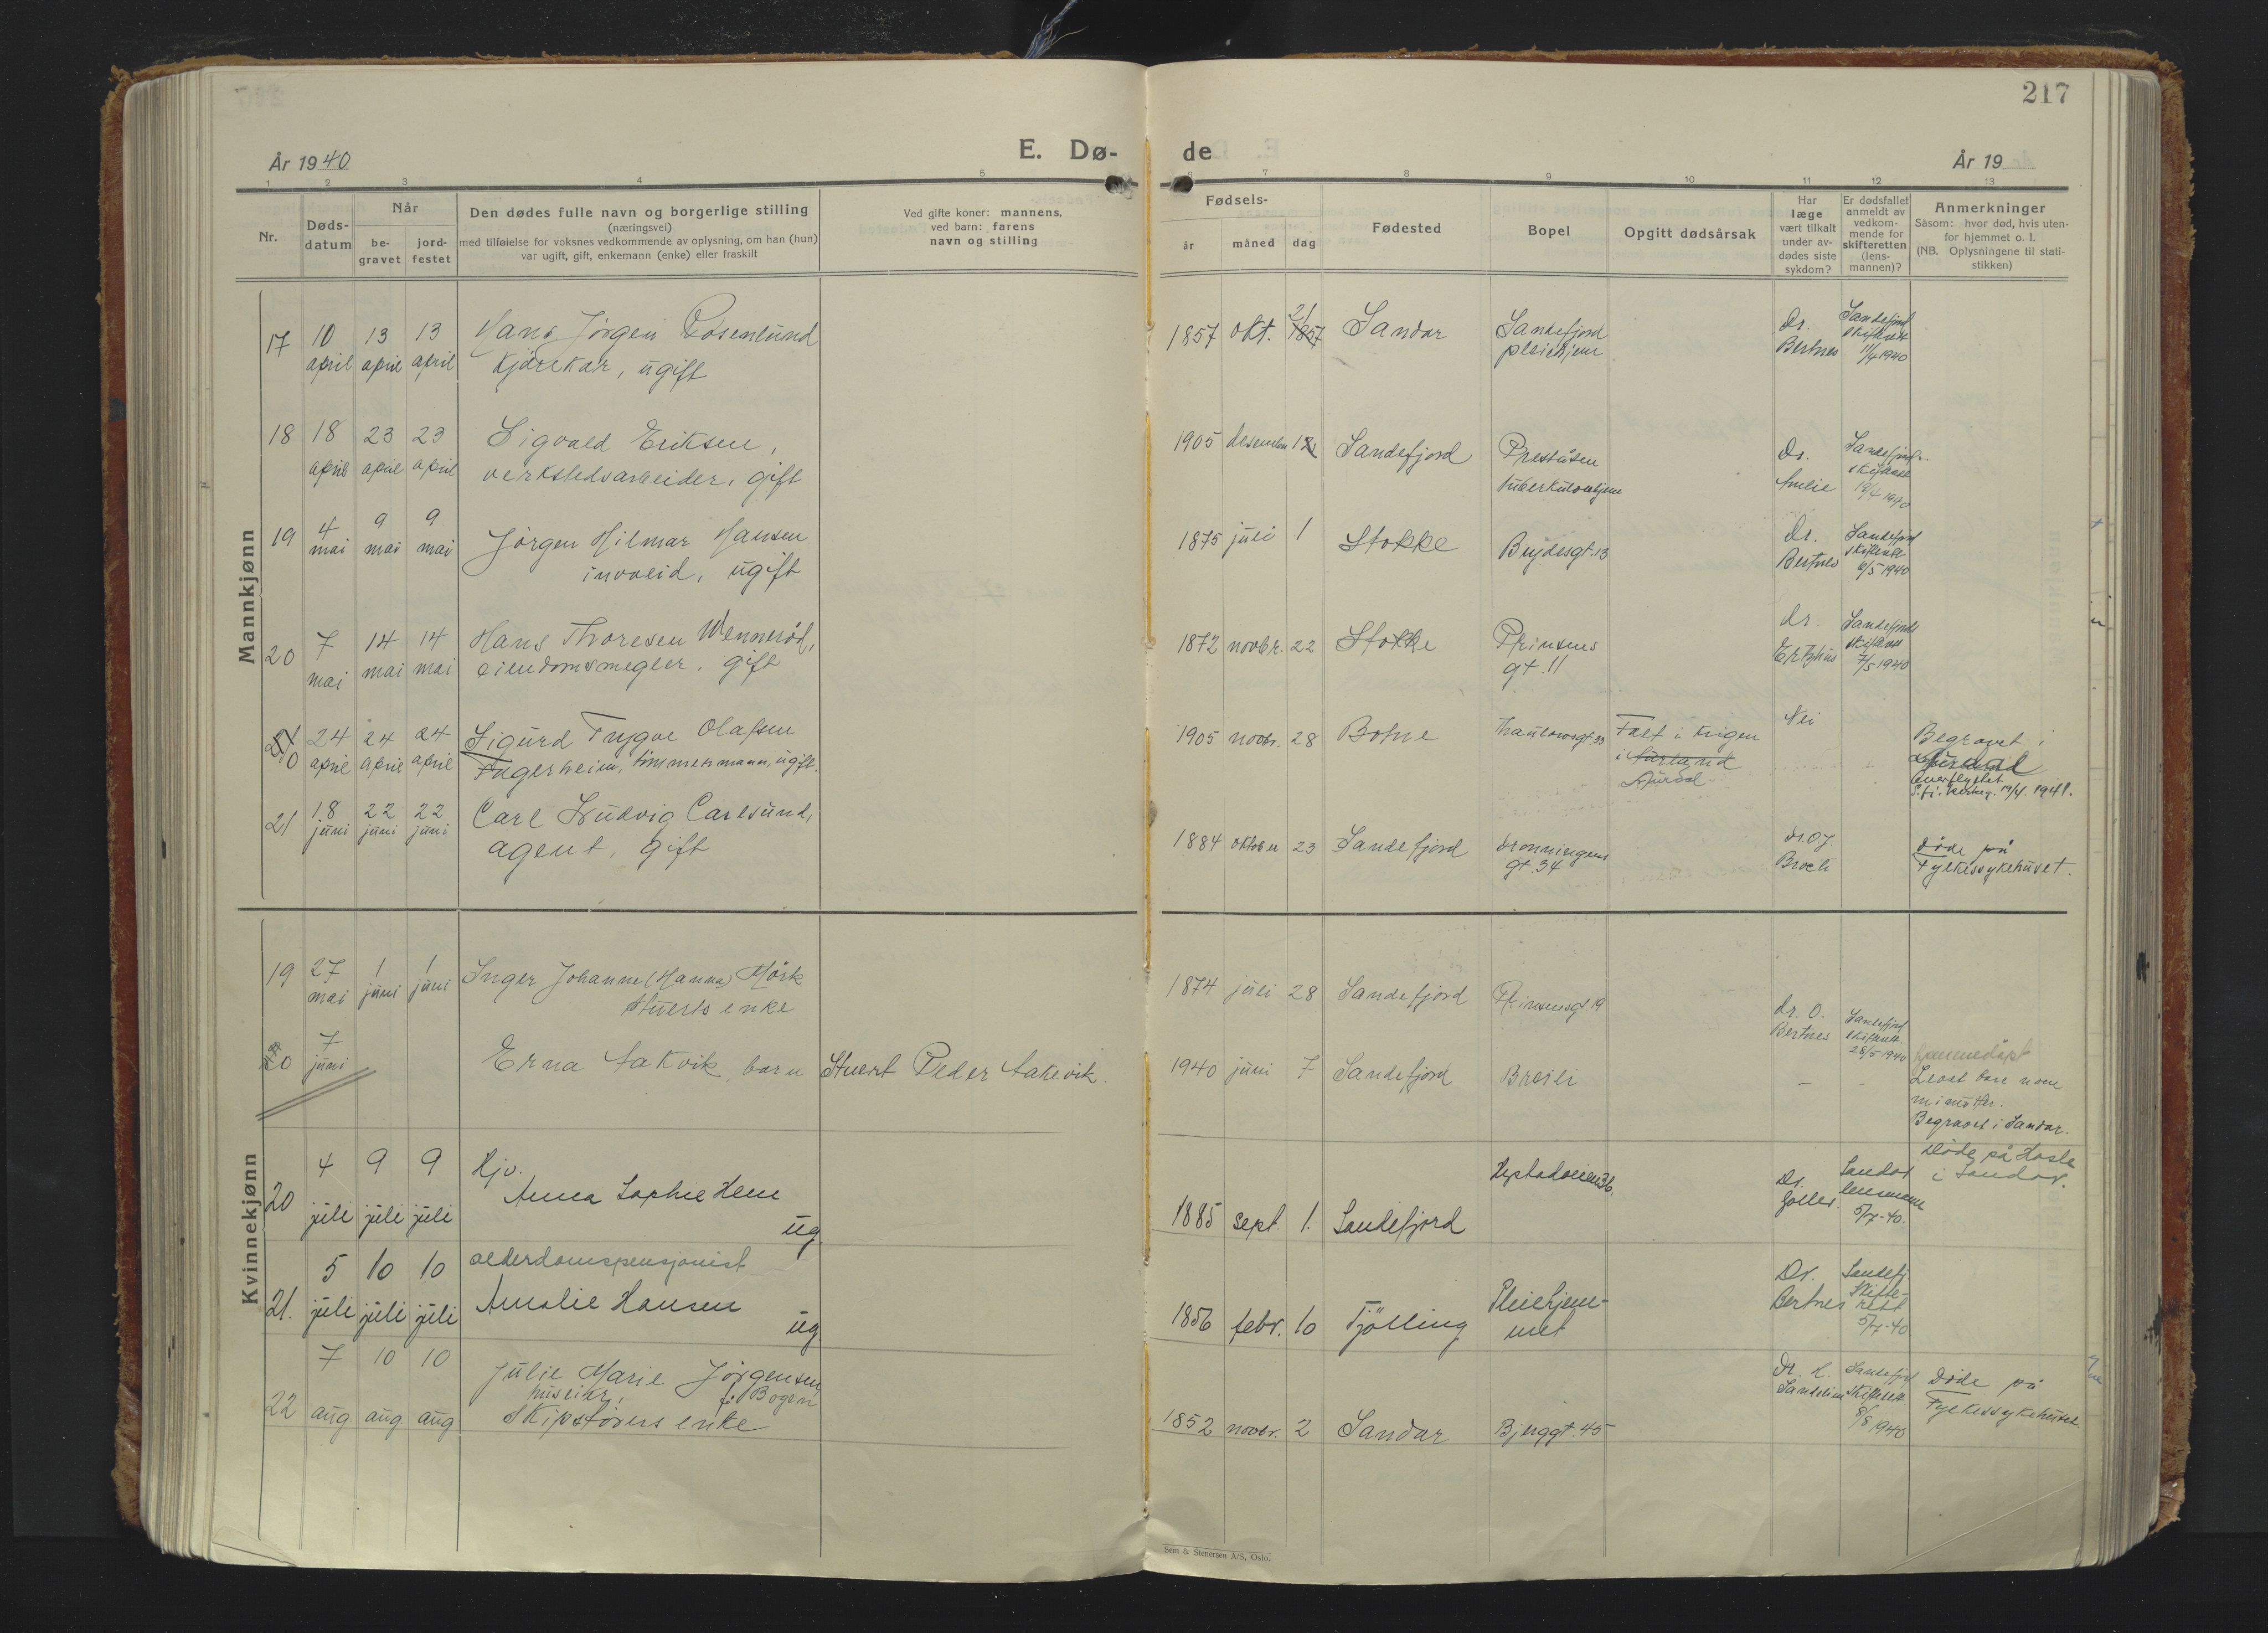 217
År 1940
E. Dø-
de
År 19
1 2 3 4 5 6 7 8 9 10 11 12 13
Nr.
Døds-
datum
Når
be-
gravet
jord-
festet
Den dødes fulle navn og borgerlige stilling
(næringsvei)
med tilføielse for voksnes vedkommende av oplysning, om han (hun)
var ugift, gift, enkemann (enke) eller fraskilt
Ved gifte koner: mannens,
ved barn: farens
navn og stilling
Fødsels-
år måned dag
Fødested
Bopel
Opgitt dødsårsak
Har
læge
vært tilkalt
under av-
dødes siste
sykdom?
Er dødsfallet
anmeldt av
vedkom-
mende for
skifteretten
(lens-
mannen)?
Anmerkninger
Såsom: hvor død, hvis uten-
for hjemmet o. l.
(NB. Oplysningene til stati-
stikken)
Mannkjønn
17 10 april 13 april 13 april
Hans Jörgen Rosenlund
Kjörekar, ugift
1857 okt. 21 1857 Sandar
Sandefjord
pleiehjem
Dr.
Bertnes
Sandefjord
skifterett
11/4 1940
18 18 april 23 april 23 april
Sigvald Eriksen,
verkstedsarbeider, gift
1905 desember Sandefjord
Preståsen
tuberkulosehjem
Dr.
Sandefjord
skifterett
19/4 1940
19 4 mai 9 mai 9 mai
Jörgen Hilmar Hansen
invalid, ugift
1875 juli 1 Stokke
Bugdesgt. 13
Dr.
Bertnes
Sandefjord
skifterett
6/5 1940
20 7 mai 14 mai 14 mai
Hans Thoresen Wennerød,
eiendomsmegler, gift
1872 novbr. 22 Stokke
Prinsens
gt. 11
dr.
Sandefjord
skifterett
7/5 1940
24 april 24 april 24 april
Sigurd Trygve Olafsen
Fagerheim, tømmermann, ugift.
1905 novbr. 28 Botne
Thaulowsgt. 33
Falt i krigen
i Aurland
Aurdal
Nei
Begravet i
Overflyttet
S.fj. kirkeg. 19/4. 1941.
21 18 juni 22 juni 22 juni
Carl Ludvig Carlsund,
agent, gift
1884 oktober 23 Sandefjord
dronningens
gt. 34
dr. O.J.
Broch
Døde på
Fylkessykehuset.
Kvinnekjønn
19 27 mai 1 juni 1 juni
Inger Johanne (Hanna) Mørk
Stuerts enke
1874 juli 28 Sandefjord
Prinsensgt. 19
dr. O.
Bertnes
Sandefjord
skifterett
28/5 1940
20 7 juni
Erna Lakvik, barn
Stuert Peder Lakvik.
1940 juni 7 Sandefjord
Breili
– -
hjemmedøpt
Levet bare noen
minutter.
Begravet i Sandar.
20 4 juli 9 juli 9 juli
Hjv.
Anna Sophie Hem
ug
1885 sept. 1. Sandefjord
Dr.
Sandar
lensmann
5/7-40.
Døde på Hasle
i Sandar.
21. 5 juli 10 juli 10 juli
alderdomspensjonist
Amalie Hansen
ug
1856 febr. 10 Tjölling
Pleiehjem-
met
Dr.
Bertnes
Sandefj.
skifte-
rett
5/7-40
22 7 aug. 10 aug. 10 aug
Julie Marie Jörgensen
huseier, f. Bogen
Skipsførers enke
1852 novbr. 2 Sandar
Bjerggt. 45
Dr. H.
Sandefjord
skifterett
8/8 1940
Døde på
Fylkessykehuset
Sem & Stenersen A/S, Oslo.